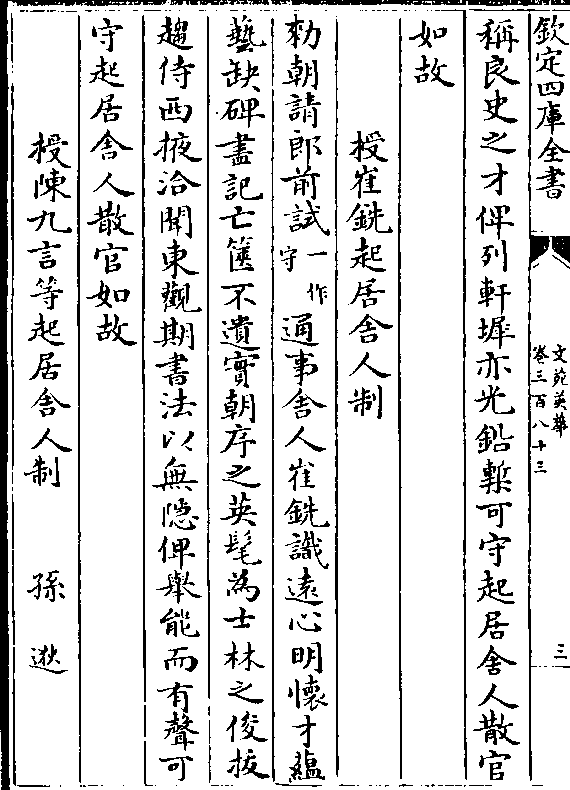 欽定四庫全書
文苑英華
卷三百八十三
三
稱良史之才俾列軒墀亦光鉛槧可守起居舍人散官
如故
授崔銑起居舍人制
勑朝請郎前試一作守通事舍人崔銑識遠心明懷才蘊
藝缺碑盡記亡篋不遺實朝序之英髦為士林之俊拔
趨侍西掖洽聞東觀期書法以無隠俾舉能而有聲可
守起居舍人散官如故
授陳九言等起居舍人制　孫逖